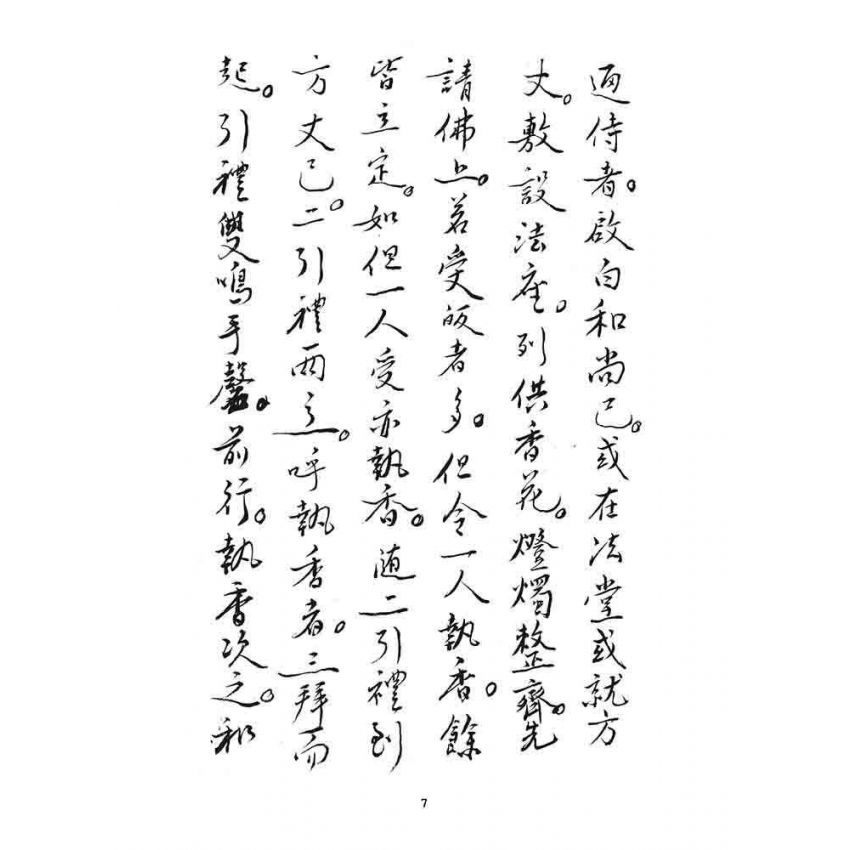 通侍者。啟白和尚已。或在法堂或就方
丈。敷設法座。列供香花。燈燭整齊。先
請佛上。若受皈者多。但令一人執香。餘
皆立定。如但一人受亦執香。随二引禮到
方丈已。二引禮両立。呼執香者。三拜而
起。引禮雙鳴手磬。前行。執香次之。和
7